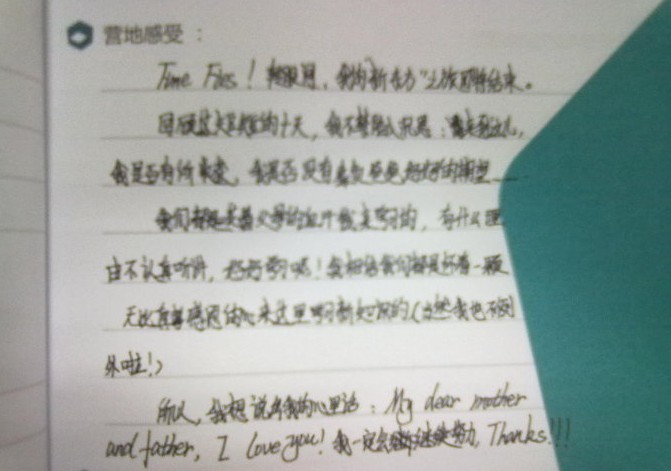 营地感受：
Time Flies！转眼间，我的新东方"之旅即将结束。
回顾这短短的十天，我不禁陷入沉思：
我是否有所改变，我是否没有辜负爸爸妈妈的期望
我们都是拿着父母的血汗钱来学习的，有什么理
由不认真听讲，好好学习呢！我相信我们都是怀着一颗
无比真挚感恩的心来这里学习新知识的（当然我也不例
外啦！）
所以，我想说出我的心里话：My dear mother
and father, I love you! 我一定会继续努力, Thanks!!!